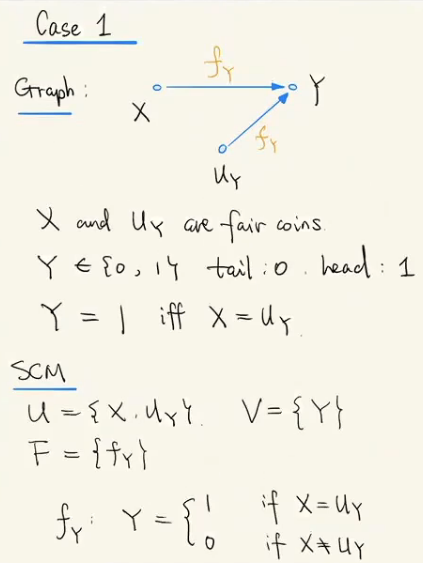 Case 1
Graph :
f_Y
X
Y
f_Y
U_Y
X and U_Y are fair coins.
Y ∈ {0, 1} tail : 0 . head : 1
Y = 1 iff X = U_Y.
SCM
U = {X, U_Y}. V = {Y}
F = {f_Y}
f_Y : Y = { 1 if X = U_Y
0 if X ≠ U_Y